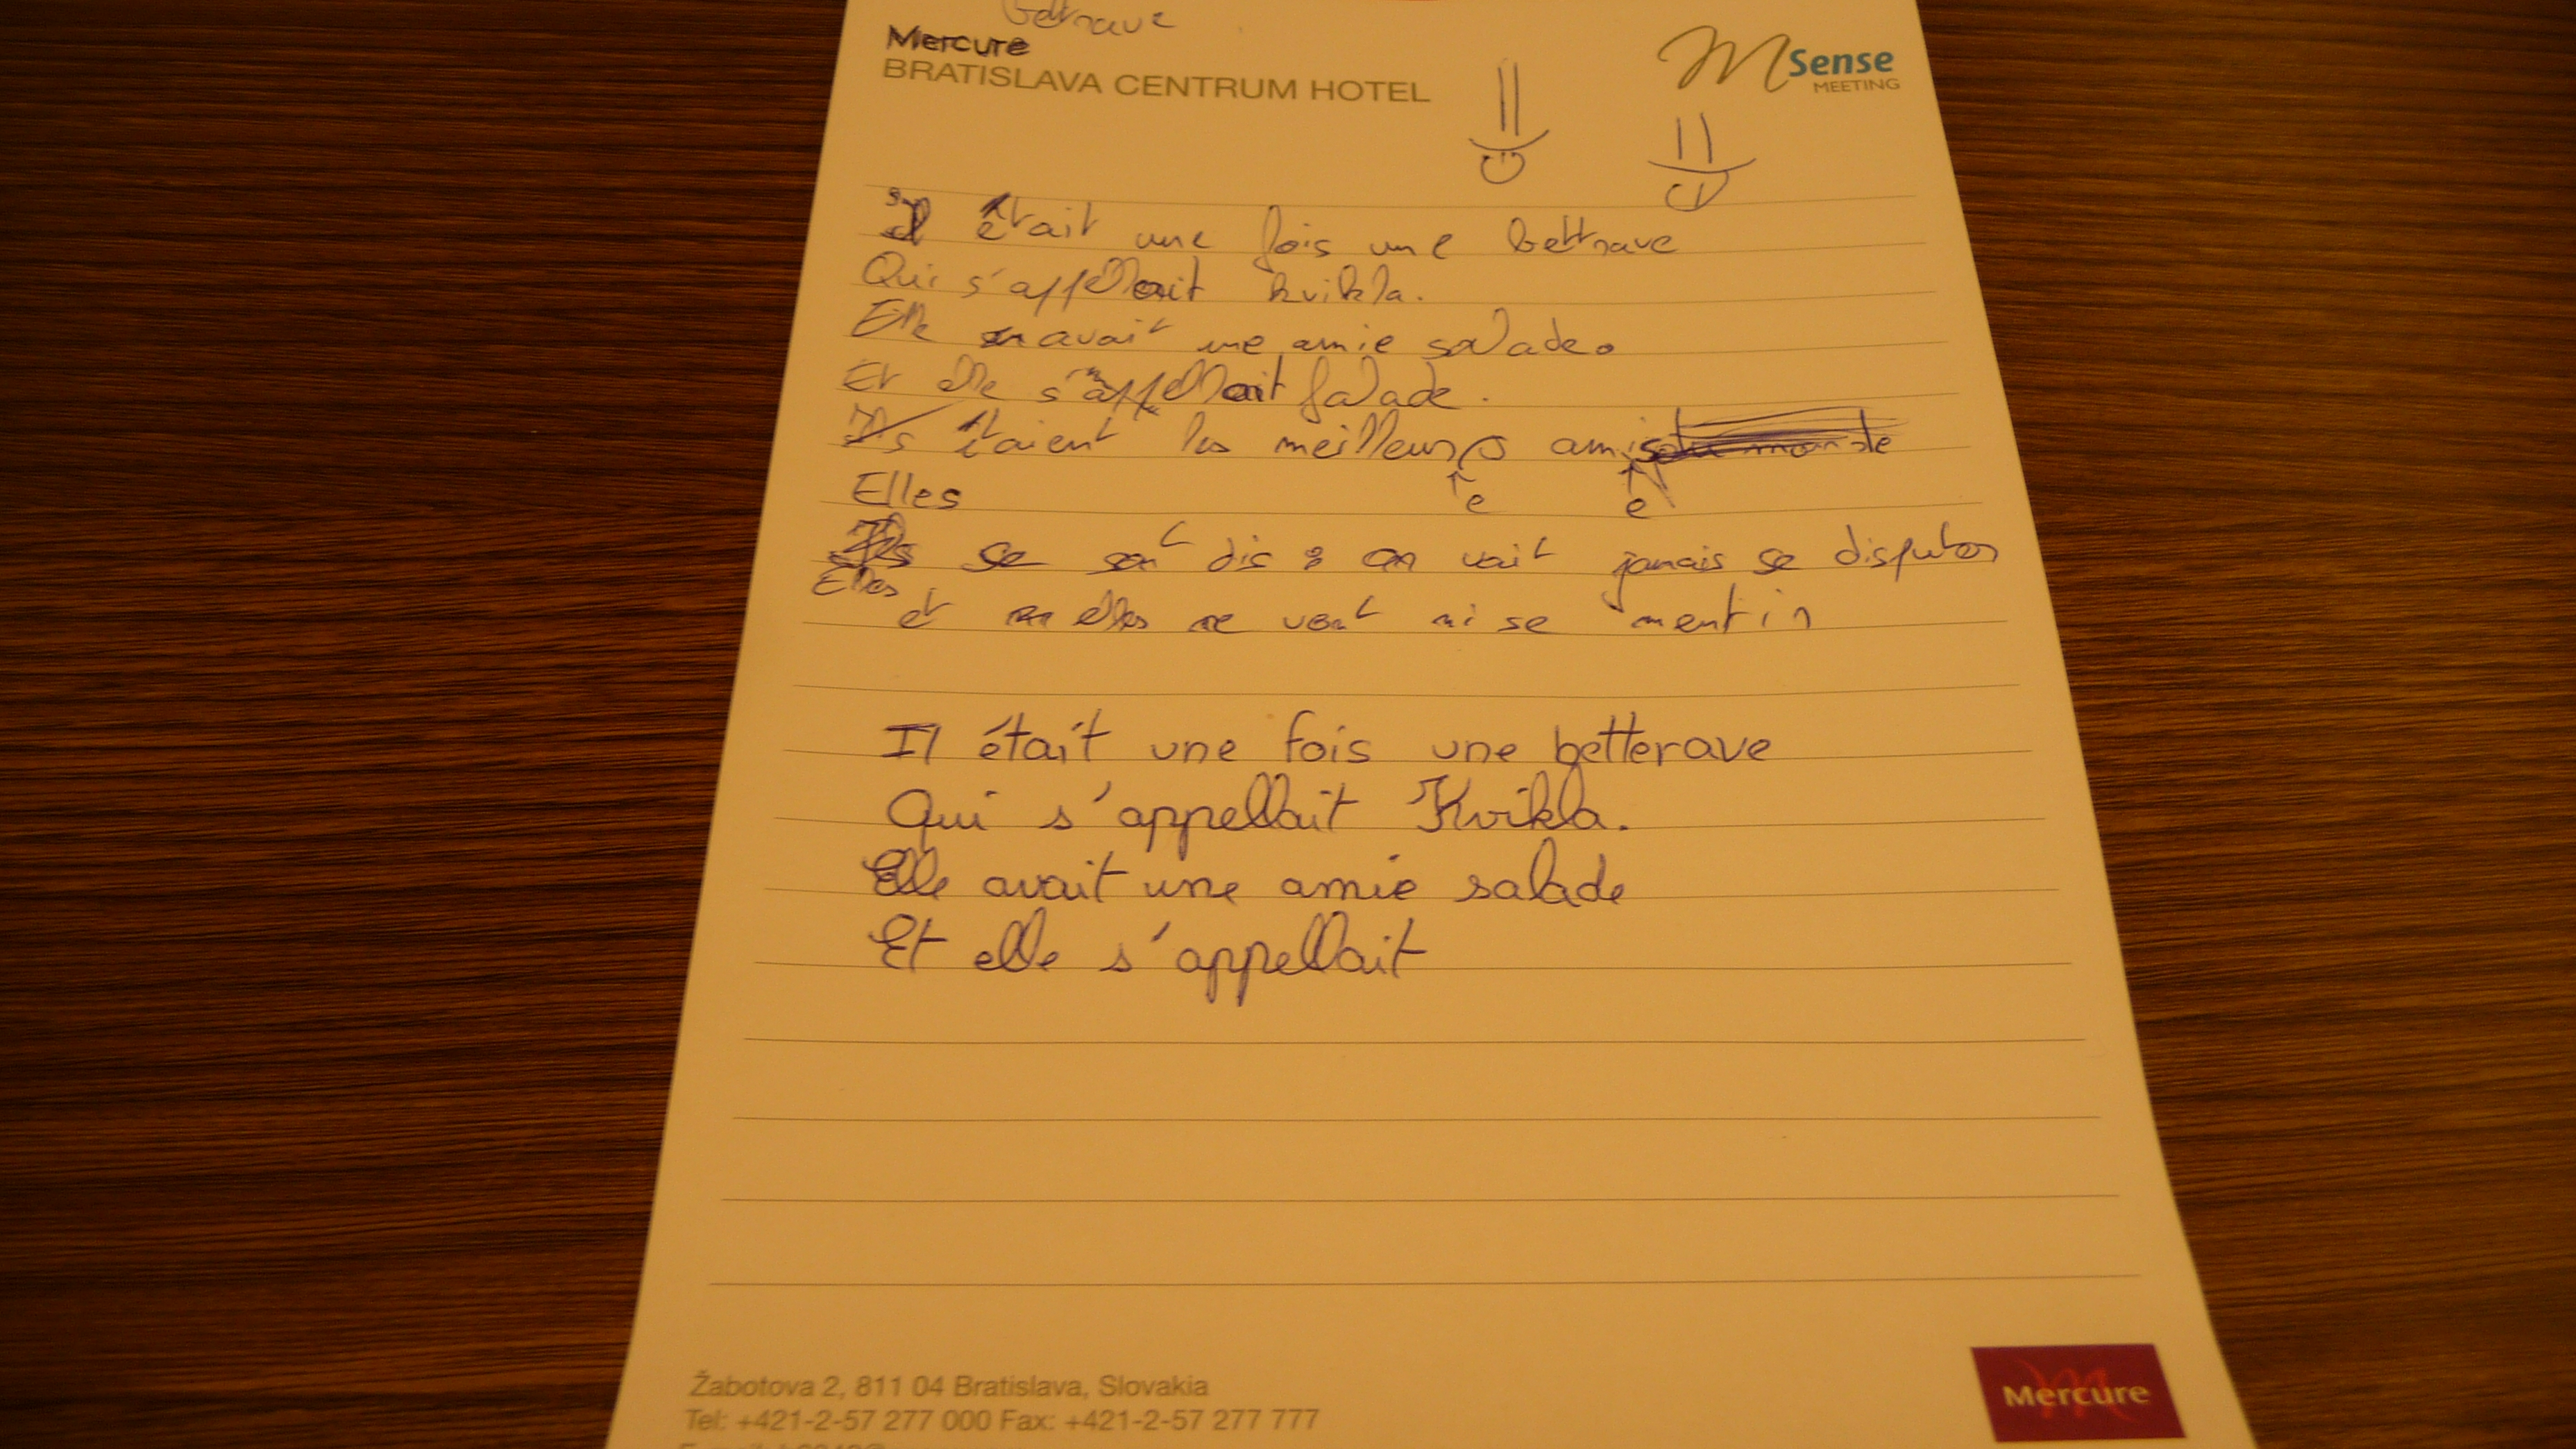 bettrave
Mercure
BRATISLAVA CENTRUM HOTEL
M Sense
MEETING
Il était une fois une bettrave
Qui s'appellait kvikla.
Elle avait une amie salade.
Et elle s'appellait falade.
Ils étaient les meilleurs amis du monde
Elles e e
Ils se sont dis : on vait jamais se disputer
Elles
et elles ne vont ni se mentir
Il était une fois une betterave
Qui s'appellait Kvikla.
Elle avait une amie salade
Et elle s'appellait
Žabotova 2, 811 04 Bratislava, Slovakia
Tel: +421-2-57 277 000 Fax: +421-2-57 277 777
Mercure